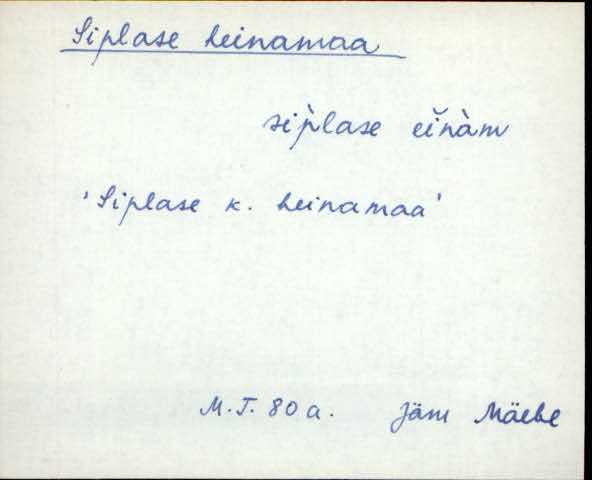 Siplase heinamaa
sip̀lase eĭnàm
'Siplase k. heinamaa'
M.T. 80 a. Jäm Mäebe